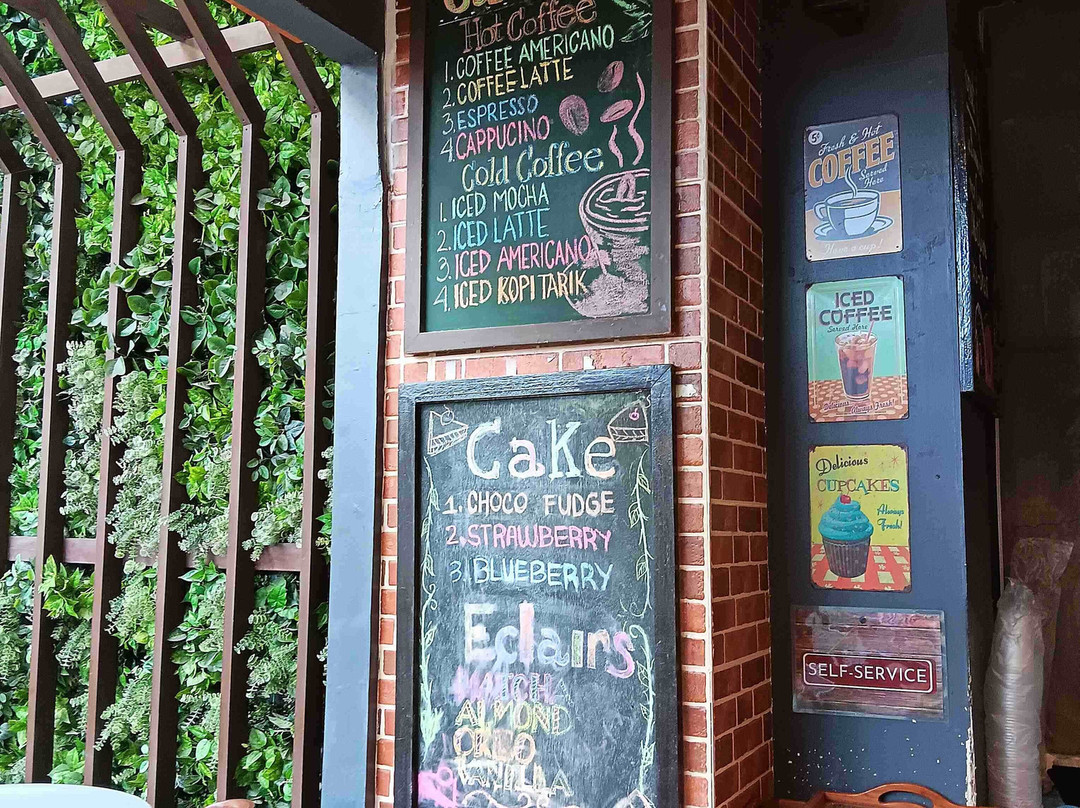 Hot Coffee
1. COFFEE AMERICANO
2. COFFEE LATTE
3. ESPRESSO
4. CAPPUCINO
Cold Coffee
1. ICED MOCHA
2. ICED LATTE
3. ICED AMERICANO
4. ICED KOPI TARIK
Cake
1. CHOCO FUDGE
2. STRAWBERRY
3. BLUEBERRY
Eclairs
MATCHA
ALMOND
OREO
VANILLA
5¢
Fresh & Hot
COFFEE
Served
Here
Have a cup!
ICED
COFFEE
Served Here
Delicious
Always Fresh!
Delicious
CUPCAKES
Always
Fresh!
SELF-SERVICE